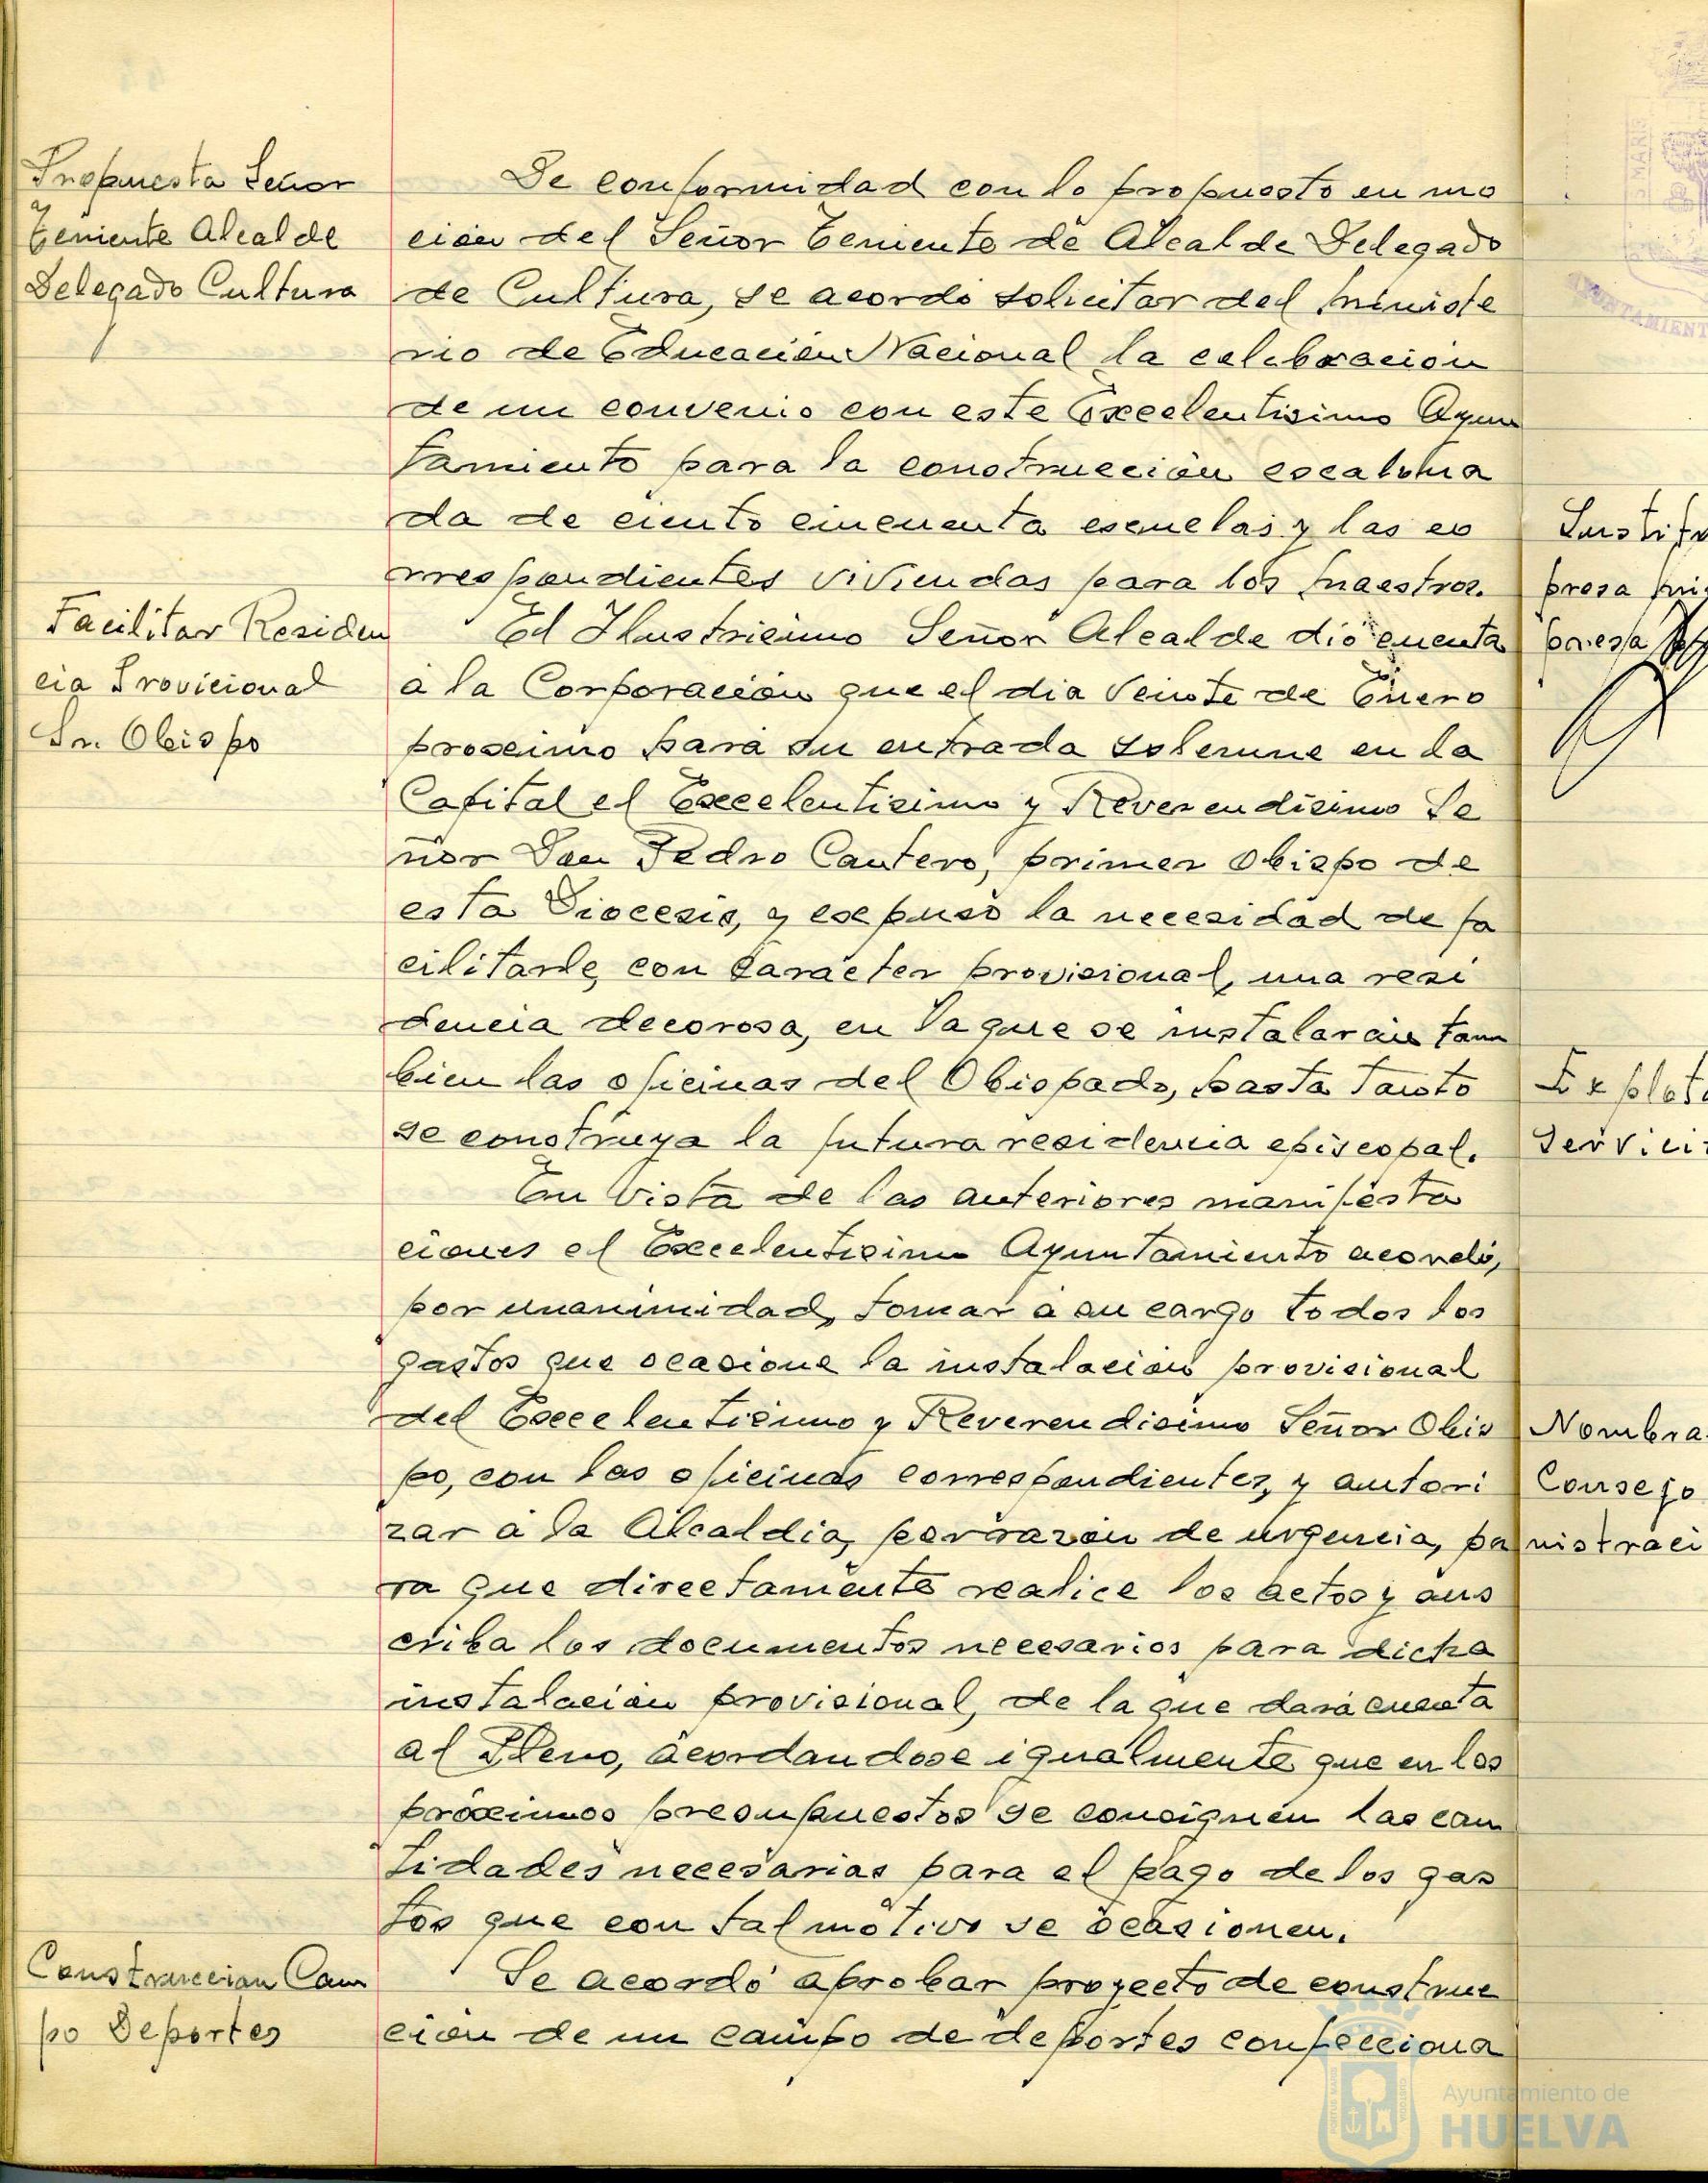 Propuesta Señor
Teniente Alcalde
Delegado Cultura
De conformidad con lo propuesto en mo
cion del Señor Teniente de Alcalde Delegado
de Cultura, se acordó solicitar del Ministe
rio de Educación Nacional la celebración
de un convenio con este Excelentisimo Ayun
tamiento para la construcción escalona
da de ciento cincuenta escuelas y las co
rrespondientes viviendas para los maestros.
Facilitar Residen
cia Provicional
Sr. Obispo
El Ilustrisimo Señor Alcalde dió cuenta
a la Corporación que el dia veinte de Enero
proximo hará su entrada solemne en la
Capital el Excelentisimo y Reverendisimo Se
ñor Don Pedro Cantero, primer Obispo de
esta Diocesis, y expuso la necesidad de fa
cilitarle, con caracter provisional, una resi
dencia decorosa, en la que se instalarán tam
bien las oficinas del Obispado, hasta tanto
se construya la futura residencia episcopal.
En vista de las anteriores manifesta
ciones el Excelentisimo Ayuntamiento acordó,
por unanimidad, tomar a su cargo todos los
gastos que ocasione la instalación provisional
del Excelentisimo y Reverendisimo Señor Obis
po, con las oficinas correspondientes, y autori
zar a la Alcaldia, por razon de urgencia, pa
ra que directamente realice los actos y sus
criba los documentos necesarios para dicha
instalación provisional, de la que dará cuenta
al Pleno, acordandose igualmente que en los
próximos presupuestos se consignen las can
tidades necesarias para el pago de los gas
tos que con tal motivo se ocasionen.
Construccion Cam
po Deportes
Se acordó aprobar proyecto de construc
ción de un campo de deportes confecciona
presa
Explota
Servici
Nombra
Consejo
nistraci
AYUNTAMIENT
Ayuntamiento de
HUELVA